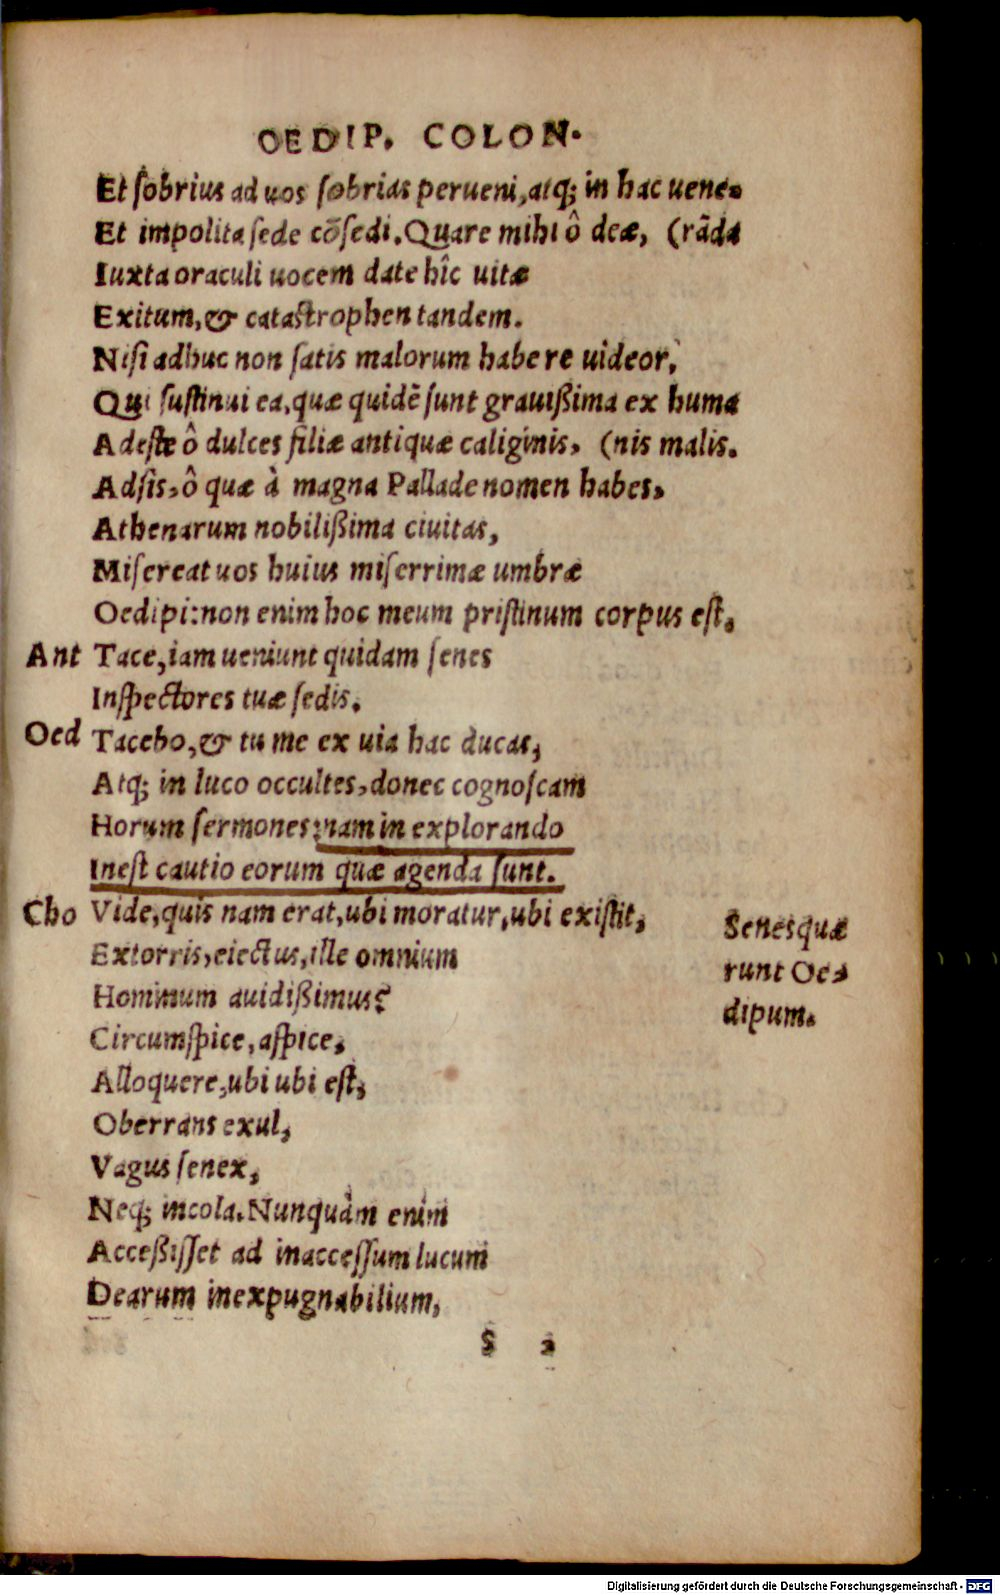 OEDIP. COLON.
Et sobrius ad uos sobrias perueni, atq; in hac uene-
Et impolita sede cõsedi. Quare mihi ô deæ, (rãda
Iuxta oraculi uocem date hîc uitæ
Exitum, & catastrophen tandem.
Nisi adhuc non satis malorum habere uideor,
Qui sustinui ea, quæ quidẽ sunt grauißima ex huma
Adeste ô dulces filiæ antiquæ caliginis, (nis malis.
Adsis, ô quæ à magna Pallade nomen habes,
Athenarum nobilißima ciuitas,
Misereat uos huius miserrimæ umbræ
Oedipi: non enim hoc meum pristinum corpus est,
Ant Tace, iam ueniunt quidam senes
Inspectores tuæ sedis.
Oed Tacebo, & tu me ex uia hac ducas,
Atq; in luco occultes, donec cognoscam
Horum sermones: nam in explorando
Inest cautio eorum quæ agenda sunt.
Cho Vide, quis nam erat, ubi moratur, ubi existit,
Extorris, eiectus, ille omnium
Hominum auidißimus?
Circumspice, aspice,
Alloquere, ubi ubi est,
Oberrans exul,
Vagus senex,
Neq; incola. Nunquàm enim
Acceßisset ad inaccessum lucum
Dearum inexpugnabilium,
Senes quæ
runt Oe-
dipum.
S 2
Digitalisierung gefördert durch die Deutsche Forschungsgemeinschaft - DFG